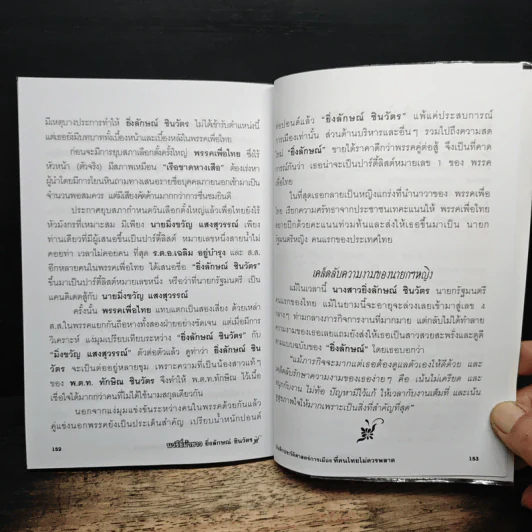 มีเหตุบางประการทำให้ ยิ่งลักษณ์ ชินวัตร ไม่ได้เข้ารับตำแหน่งนี้
แต่เธอยังมีบทบาททั้งเบื้องหน้าและเบื้องหลังในพรรคเพื่อไทย
ก่อนจะมีการยุบสภาเลือกตั้งครั้งใหญ่ พรรคเพื่อไทย ซึ่งไร้
หัวหน้า (ตัวจริง) มีสภาพเหมือน "เรือขาดหางเสือ" ต้องเร่งหา
ผู้นำโดยมีการโยนหินถามทางเสนอรายชื่อบุคคลภายนอกเข้ามาเป็น
จำนวนพอสมควร แต่มีเสียงคัดค้านมากกว่าการชื่นชมยินดี
ประกาศยุบสภากำหนดวันเลือกตั้งใหญ่แล้วเพื่อไทยยังไร้
หัวมังกรที่เหมาะสม มีเพียง นายมิ่งขวัญ แสงสุวรรณ์ เพียง
ท่านเดียวที่มีผู้เสนอขึ้นเป็นปาร์ตี้ลิสต์ หมายเลขหนึ่งสายน้ำไม่
คอยท่า เวลาไม่คอยคน ที่สุด ร.ต.อ.เฉลิม อยู่บำรุง และ ส.ส.
อีกหลายคนในพรรคเพื่อไทย ได้เสนอชื่อ "ยิ่งลักษณ์ ชินวัตร"
ขึ้นมาเป็นปาร์ตี้ลิสต์หมายเลขหนึ่ง หรือว่าที่นายกรัฐมนตรี เป็น
แคนดิเดตสู้กับ นายมิ่งขวัญ แสงสุวรรณ์
ครั้งนั้น พรรคเพื่อไทย แทบแตกเป็นสองเสี่ยง ด้วยเหล่า
ส.ส.ในพรรคแยกกันถือหางทั้งสองฝ่ายอย่างชัดเจน แต่เมื่อมีการ
วิเคราะห์ แง่มุมเปรียบเทียบระหว่าง "ยิ่งลักษณ์ ชินวัตร" กับ
"มิ่งขวัญ แสงสุวรรณ์" ตัวต่อตัวแล้ว ดูท่าว่า ยิ่งลักษณ์ ชิน
วัตร จะเป็นต่ออยู่หลายขุม เพราะความที่เป็นน้องสาวแท้ๆ
ของ พ.ต.ท. ทักษิณ ชินวัตร จึงทำให้ พ.ต.ท.ทักษิณ ไว้เนื้อ
เชื่อใจได้มากกว่าคนที่ไม่ได้ใช้นามสกุลเดียวกัน
นอกจากแง่มุมแข่งขันระหว่างคนในพรรคด้วยกันแล้ว
คู่แข่งนอกพรรคยังเป็นประเด็นสำคัญ เปรียบน้ำหนักปอนด์
152 ยิ่งลักษณ์ ชินวัตร
ต่อปอนด์แล้ว "ยิ่งลักษณ์ ชินวัตร" แพ้แค่ประสบการณ์
การเมืองเท่านั้น ส่วนด้านบริหารและอื่นๆ รวมไปถึงความสด
ใหม่ "ยิ่งลักษณ์" ขายได้ราคาดีกว่าพรรคคู่ต่อสู้ จึงเป็นที่คาด
การณ์กันว่า เธอน่าจะเป็นปาร์ตี้ลิสต์หมายเลข 1 ของ พรรค
เพื่อไทย
ในที่สุดเธอกลายเป็นหญิงแกร่งที่นำนาวาของ พรรคเพื่อ
ไทย เรียกความศรัทธาจากประชาชนเทคะแนนให้ พรรคเพื่อไทย
ชนะด้วยคะแนนท่วมท้นและส่งให้เธอขึ้นมาเป็น นายก
รัฐมนตรีหญิง คนแรกของประเทศไทย
เคล็ดลับความงามของนายกฯหญิง
แม้ในเวลานี้ นางสาวยิ่งลักษณ์ ชินวัตร นายกรัฐมนตรี
คนแรกของไทย แม้ในยามนี้จะอายุจะล่วงเลยเข้ามาสู่เลข 4
ท่ามกลางภาระกิจการงานที่มากมาย แต่กลับไม่ได้ทำลาย
ความงามของเธอเลยแถมยังส่งให้เธอเป็นสาวสวยสะพรั่งและดูดี
ตามแบบฉบับของ "ยิ่งลักษณ์" โดยเธอบอกว่า
"แม้ภารกิจจะมากแต่เธอต้องดูแลตัวเองให้ดีด้วย และ
เคล็ดลับรักษาความงามของเธอง่ายๆ คือ เน้นไม่เครียด และ
สนุกกับงาน ไม่ท้อ ปัญหามีไว้แก้ ให้เวลากับงานเต็มที่ และเน้น
สุขภาพใจให้มากเพราะเป็นสิ่งที่สำคัญที่สุด"
ประวัติศาสตร์การเมือง ที่คนไทยไม่ควรพลาด 153